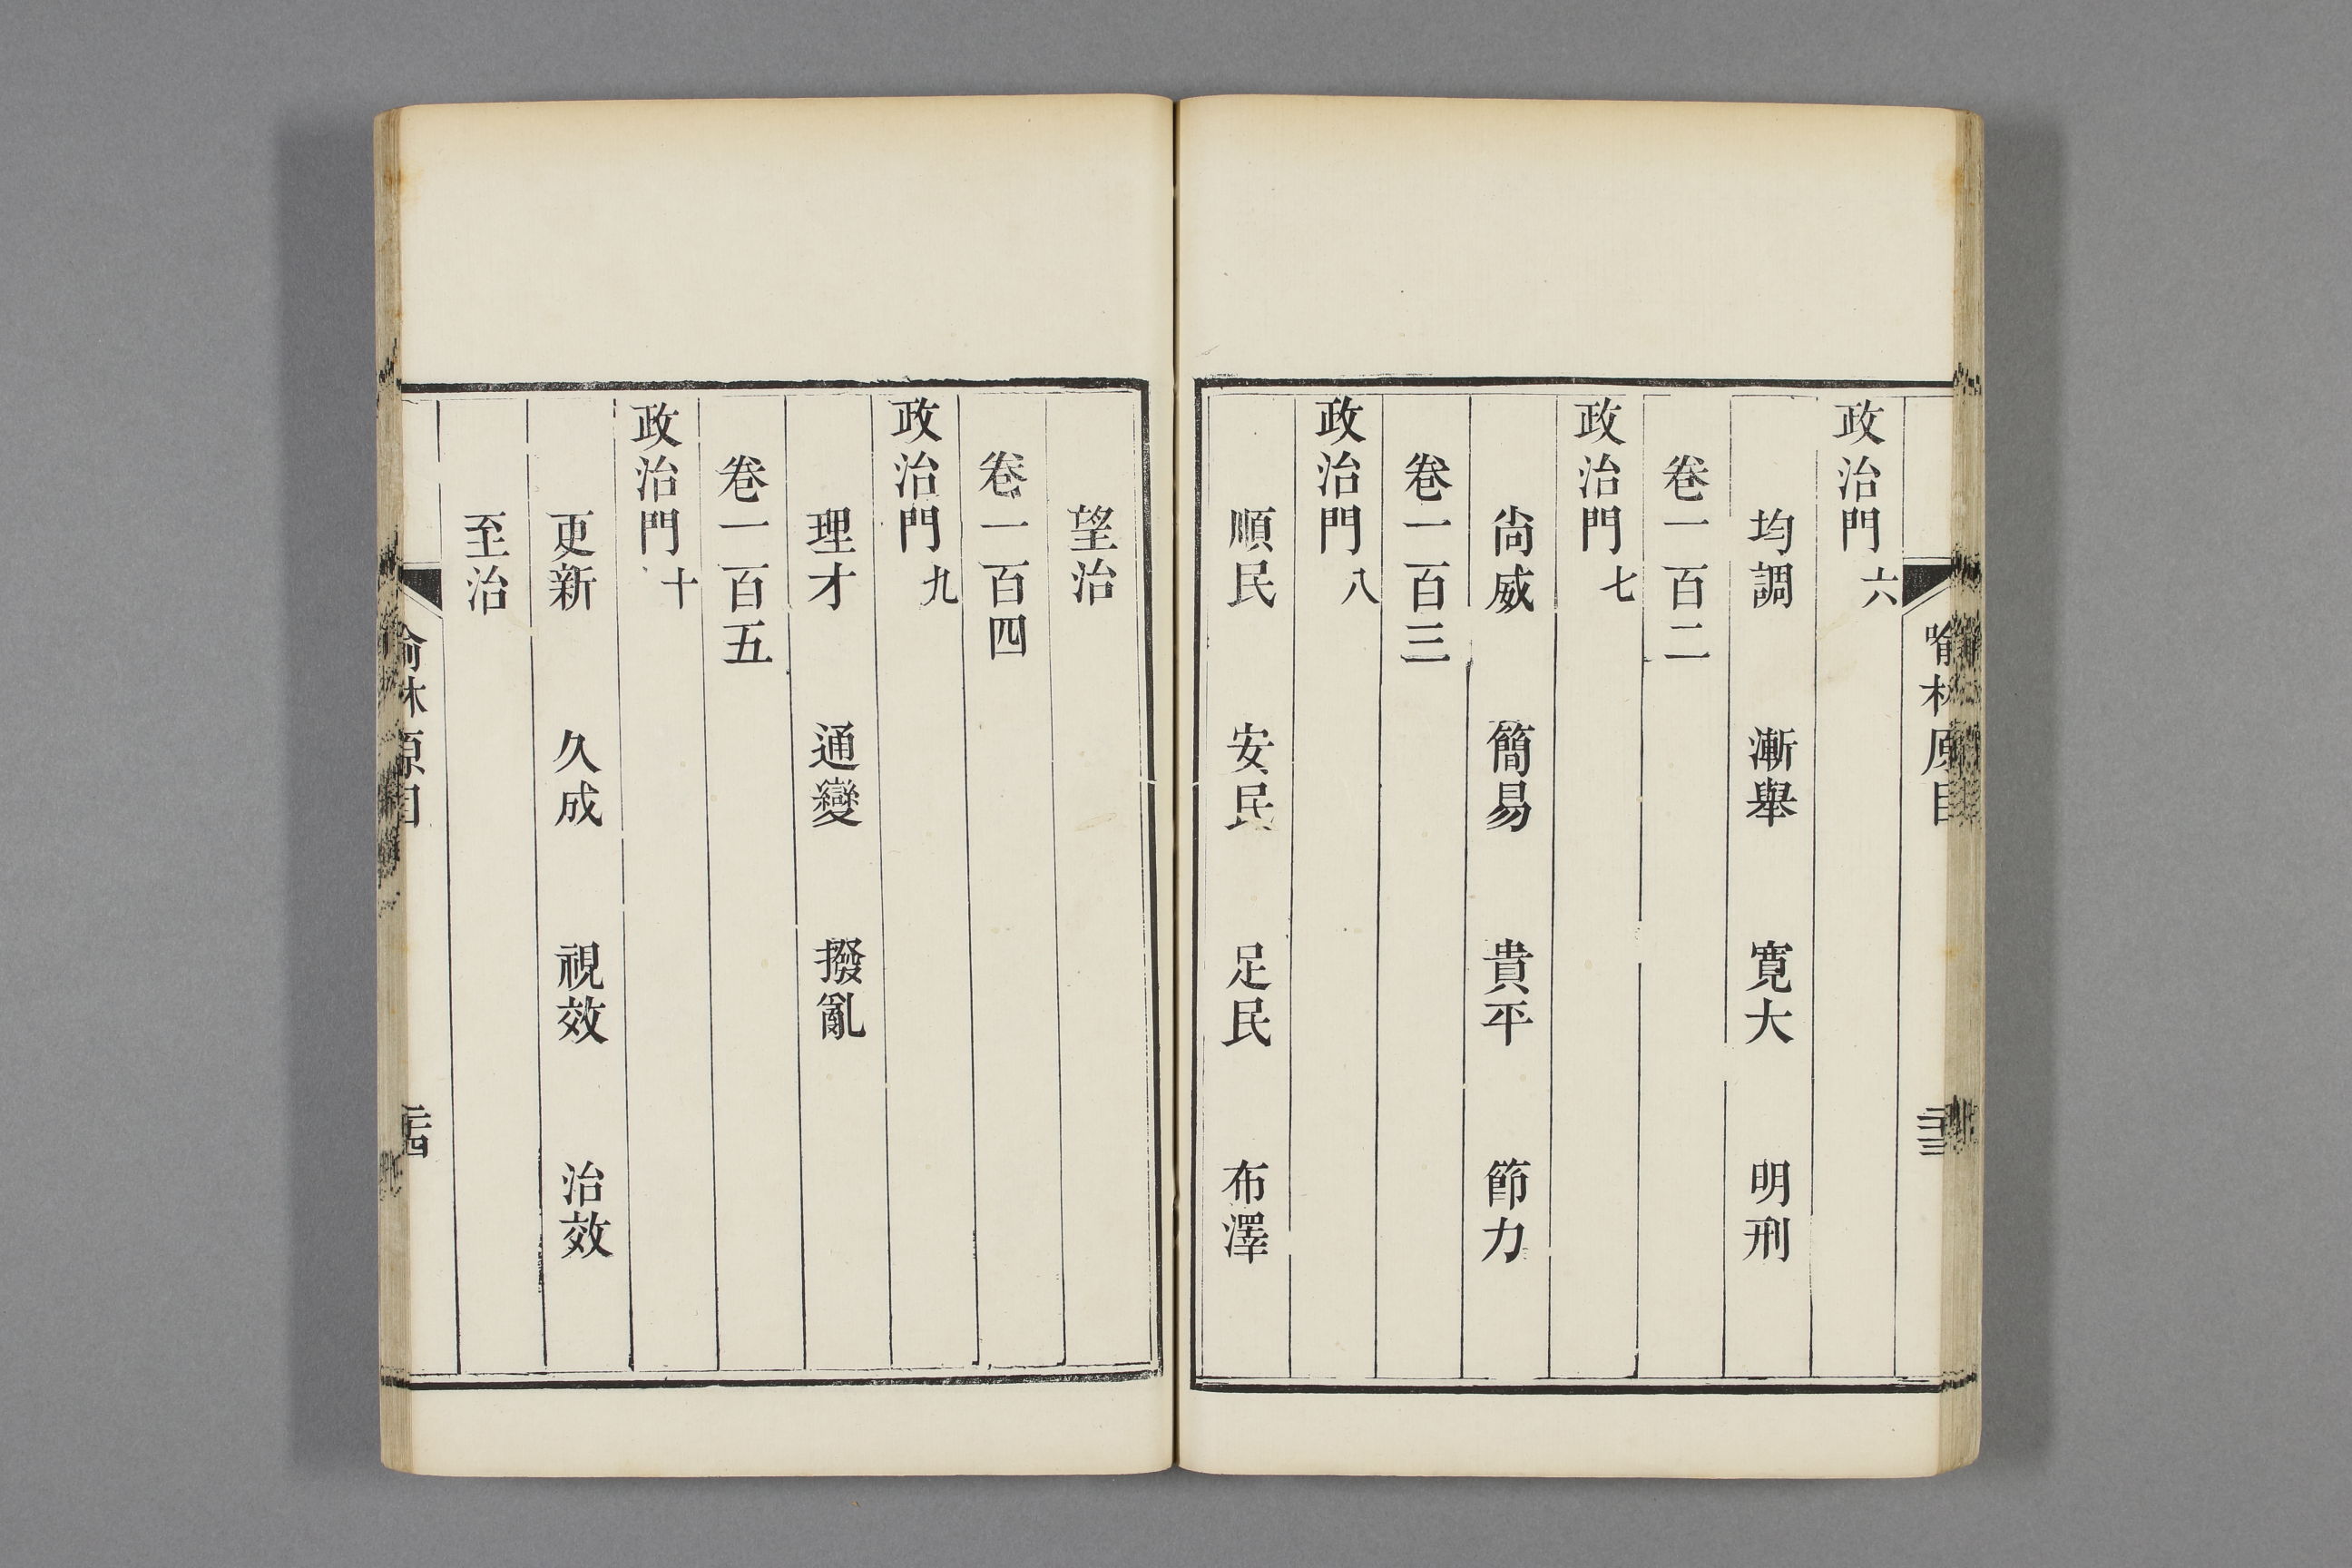 喻林原目
二十三
政治門六
均調 漸舉 寛大 明刑
卷一百二
政治門七
尙威 簡易 貴平 節力
卷一百三
政治門八
順民 安民 足民 布澤
望治
卷一百四
政治門九
理才 通變 撥亂
卷一百五
政治門十
更新 久成 視效 治效
至治
喻林原目
二十四